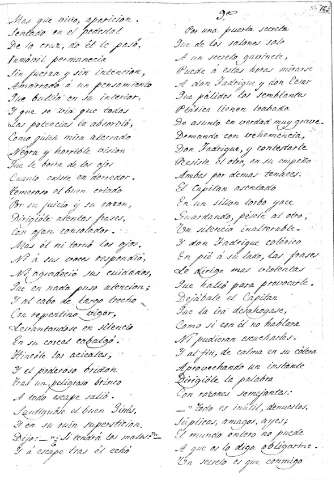 Mas que vivo, aparicion.
Sentado en el pedestal
De la cruz, do él le posó,
Inmóvil permanecia
Sin fuerza y sin intencion,
Amarrado á un pensamiento
Que bullia en su interior,
Y que se vió que todas
Sus potencias le absorbió,
Como quien mira aterrado
Negra y horrible vision
Que le borra de los ojos
Cuanto existe en derredor.
Temeroso el buen criado
Por su juicio y su razon,
Dirigióle atentas frases,
Con afan consolador.
Mas él ni tornó los ojos,
Ni á sus voces respondió,
Ni agradeció sus cuidados,
Que en nada puso atencion;
Y al cabo de largo trecho
Con repentino vigor,
Levantándose en silencio
En su corcel cabalgó.
Hincóle los acicates,
Y el poderoso bridon
Tras un peligroso brinco
A todo escape salió.
Santiguóse el buen Ginés,
Y en su ruin supersticion,
Dijo: —¿Si tendrá los malos?—
Y á escape tras él echó
3º
Por una puerta secreta
Que de los salones sale
A un secreto gabinete,
Puede á estas horas mirarse
A don Fadrique y don César
Que pálidos los semblantes
Plática tienen trabada
De asunto en verdad muy grave.
Demanda con vehemencia,
Don Fadrique, y contestarle
Resiste el otro, en su empeño
Ambos por demas tenaces.
El Capitan asentado
En un sillon torbo yace
Guardando, pésia al otro,
Un silencio inalterable.
Y don Fadrique colérico
En pié á su lado, las frases
Le dirige mas violentas
Que halló para provocarle.
Dejábale el Capitan
Que la ira desahogase,
Como si con él no hablara
Ni pudieran escucharlas.
Y al fin, de calma en su cólera
Aprovechando un instante
Dirigióle la palabra
Con razones semejantes:
—"Todo es inútil, denuestos,
Súplicas, amagos, ayes;
El mundo entero no puede
A que os lo diga obligarme.
Un secreto es que conmigo